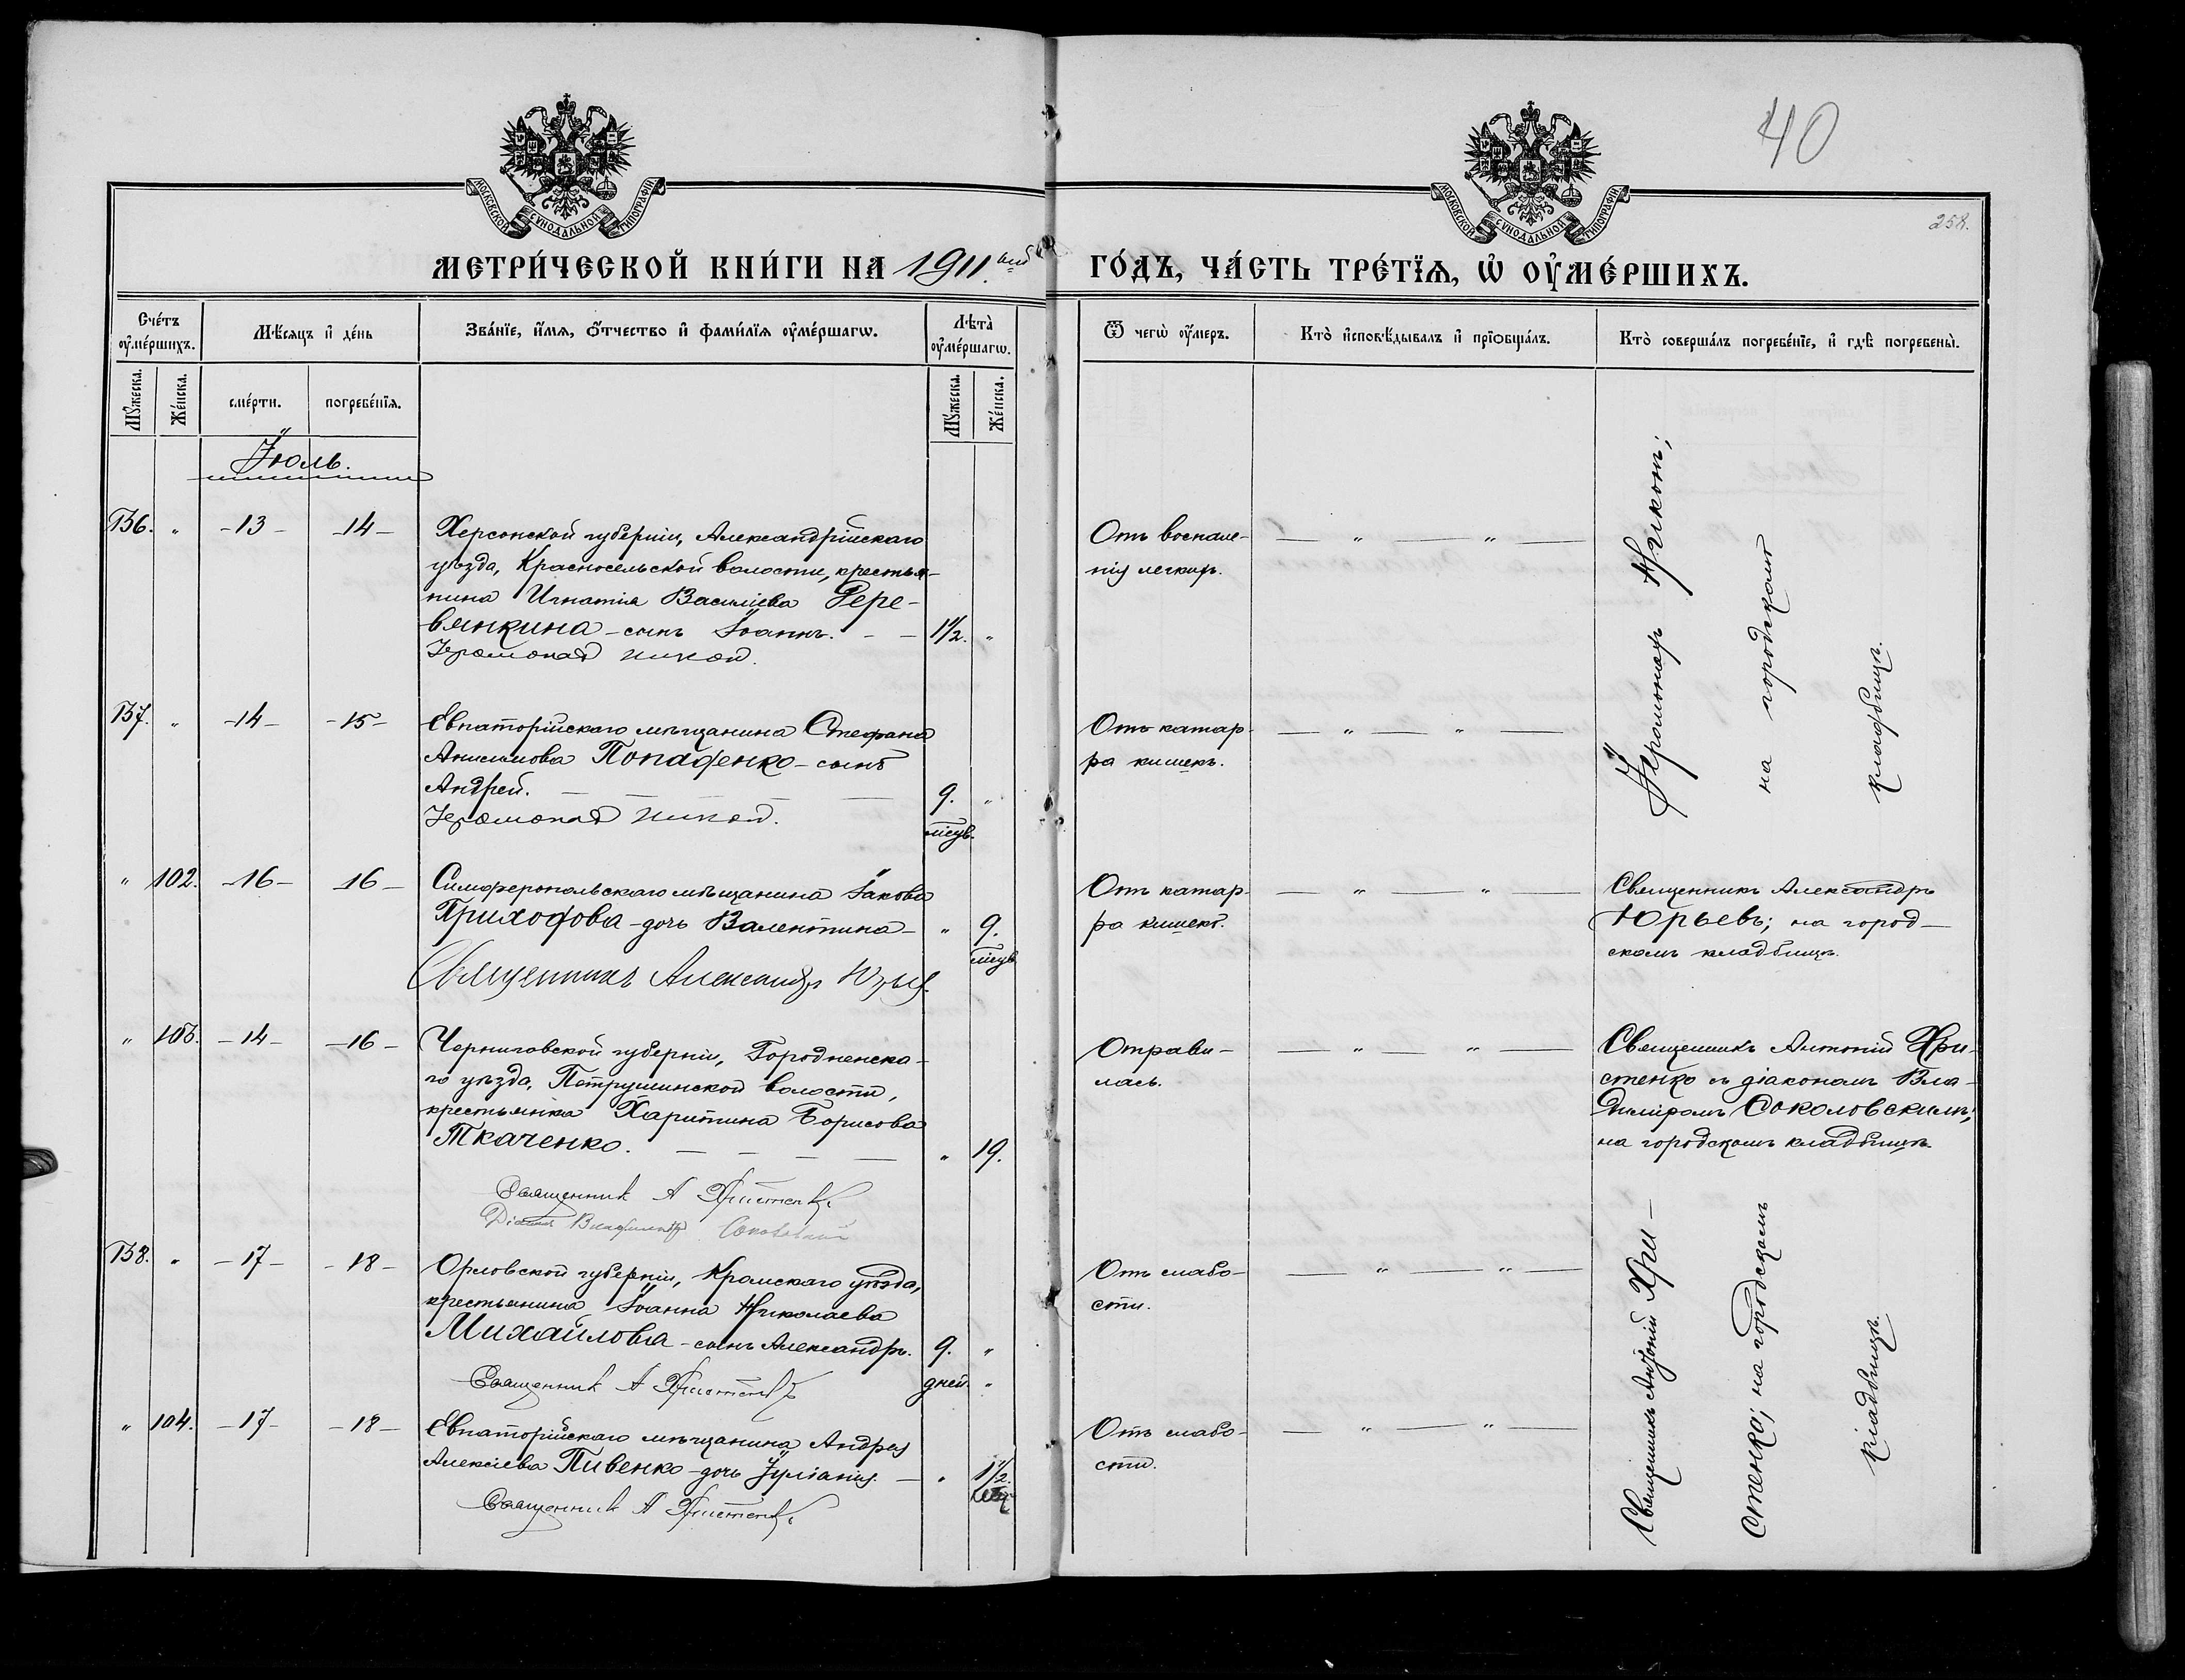 40
258.
МОСКОВСКОЙ СѴНОДАЛЬНОЙ ТИПОГРАФІИ
МОСКОВСКОЙ СѴНОДАЛЬНОЙ ТИПОГРАФІИ
МЕТРИ́ЧЕСКОЙ КНИ́ГИ НА 1911.ый
ГО́ДЪ, ЧА́СТЬ ТРЕ́ТЇѦ, Ѡ҆ ОУ҆МЕ́РШИХЪ.
Сче́тъ оу҆ме́ршихъ.
Мѣ́сяцъ и҆ де́нь
Зва́нїе, и҆́мѧ, ѻ҆́тчество и҆ фами́лїѧ оу҆ме́ршагѡ.
Лѣта̀ оу҆ме́ршагѡ.
Ѿ чегѡ̀ оу҆́меръ.
Кто̀ и҆сповѣ́дывалъ и҆ прїѻбща́лъ.
Кто̀ соверша́лъ погребе́нїе, и҆ гдѣ̀ погребены̀.
Мꙋ́жеска. Же́нска. сме́рти. погребе́нїѧ. Мꙋ́жеска. Же́нска.
Іюль.
136. " -13- 14-
Херсонской губерніи, Александрійскаго
уѣзда, Красносельской волости, крестья-
нина Игнатія Василіева Дере-
вянкина - сынъ Іоаннъ. - - 1½. "
Іеромонах Никон.
Отъ воспале-
нія легкихъ.
— " — " —
Іеромонахъ Никонъ;
на городскомъ
кладбищѣ.
137. " -14- -15-
Евпаторійскаго мѣщанина Стефана
Анисимова Попаденко - сынъ
Андрей. — — — — 9. "
мсцв.
Іеромонах Никон.
Отъ катар-
ра кишекъ.
— " — " —
" 102. -16- 16-
Симферопольскаго мѣщанина Іакова
Приходова - дочь Валентина - " 9.
мсцв
Священникъ Александръ Юрьев.
Отъ катар-
ра кишекъ.
— " — " —
Священникъ Александръ
Юрьевъ; на город-
скомъ кладбищѣ.
" 103. -14- -16-
Черниговской губерніи, Городненска-
го уѣзда, Петрушинской волости,
крестьянка Харитина Борисова
Ткаченко. — — — — " 19.
Священник А Христенко
Діакон Владимир Соколовский
Отрави-
лась.
— " — " —
Священникъ Антоній Хри-
стенко съ діакономъ Вла-
диміромъ Соколовскимъ;
на городскомъ кладбищѣ
138. " -17- -18-
Орловской губерніи, Кромскаго уѣзда,
крестьянина Іоанна Николаева
Михайлова - сынъ Александръ. 9. "
дней. "
Священник А Христенко
Отъ слабо-
сти.
— " — " —
Священникъ Антоній Хри-
стенко; на городскомъ
кладбищѣ.
" 104. -17- -18-
Евпаторійскаго мѣщанина Андрея
Алексіева Пивенко - дочь Іуліанія. - " 1½.
Священник А Христенко
Отъ слабо-
сти.
— " — " —